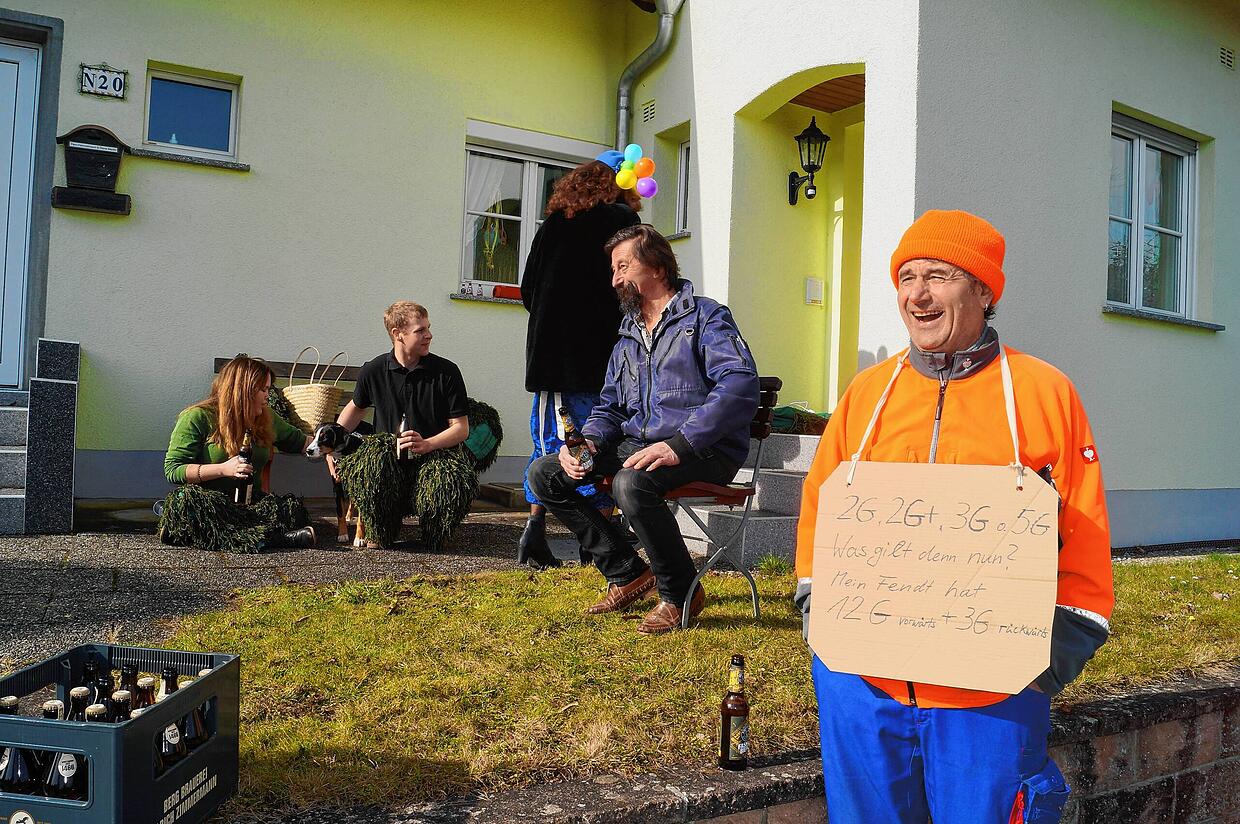 N20
2G, 2G+, 3G o. 5G
Was gilt denn nun?
Mein Fendt hat
12G vorwärts + 3G rückwärts
BERG BRAUEREI
RICH ZIMMERMANN